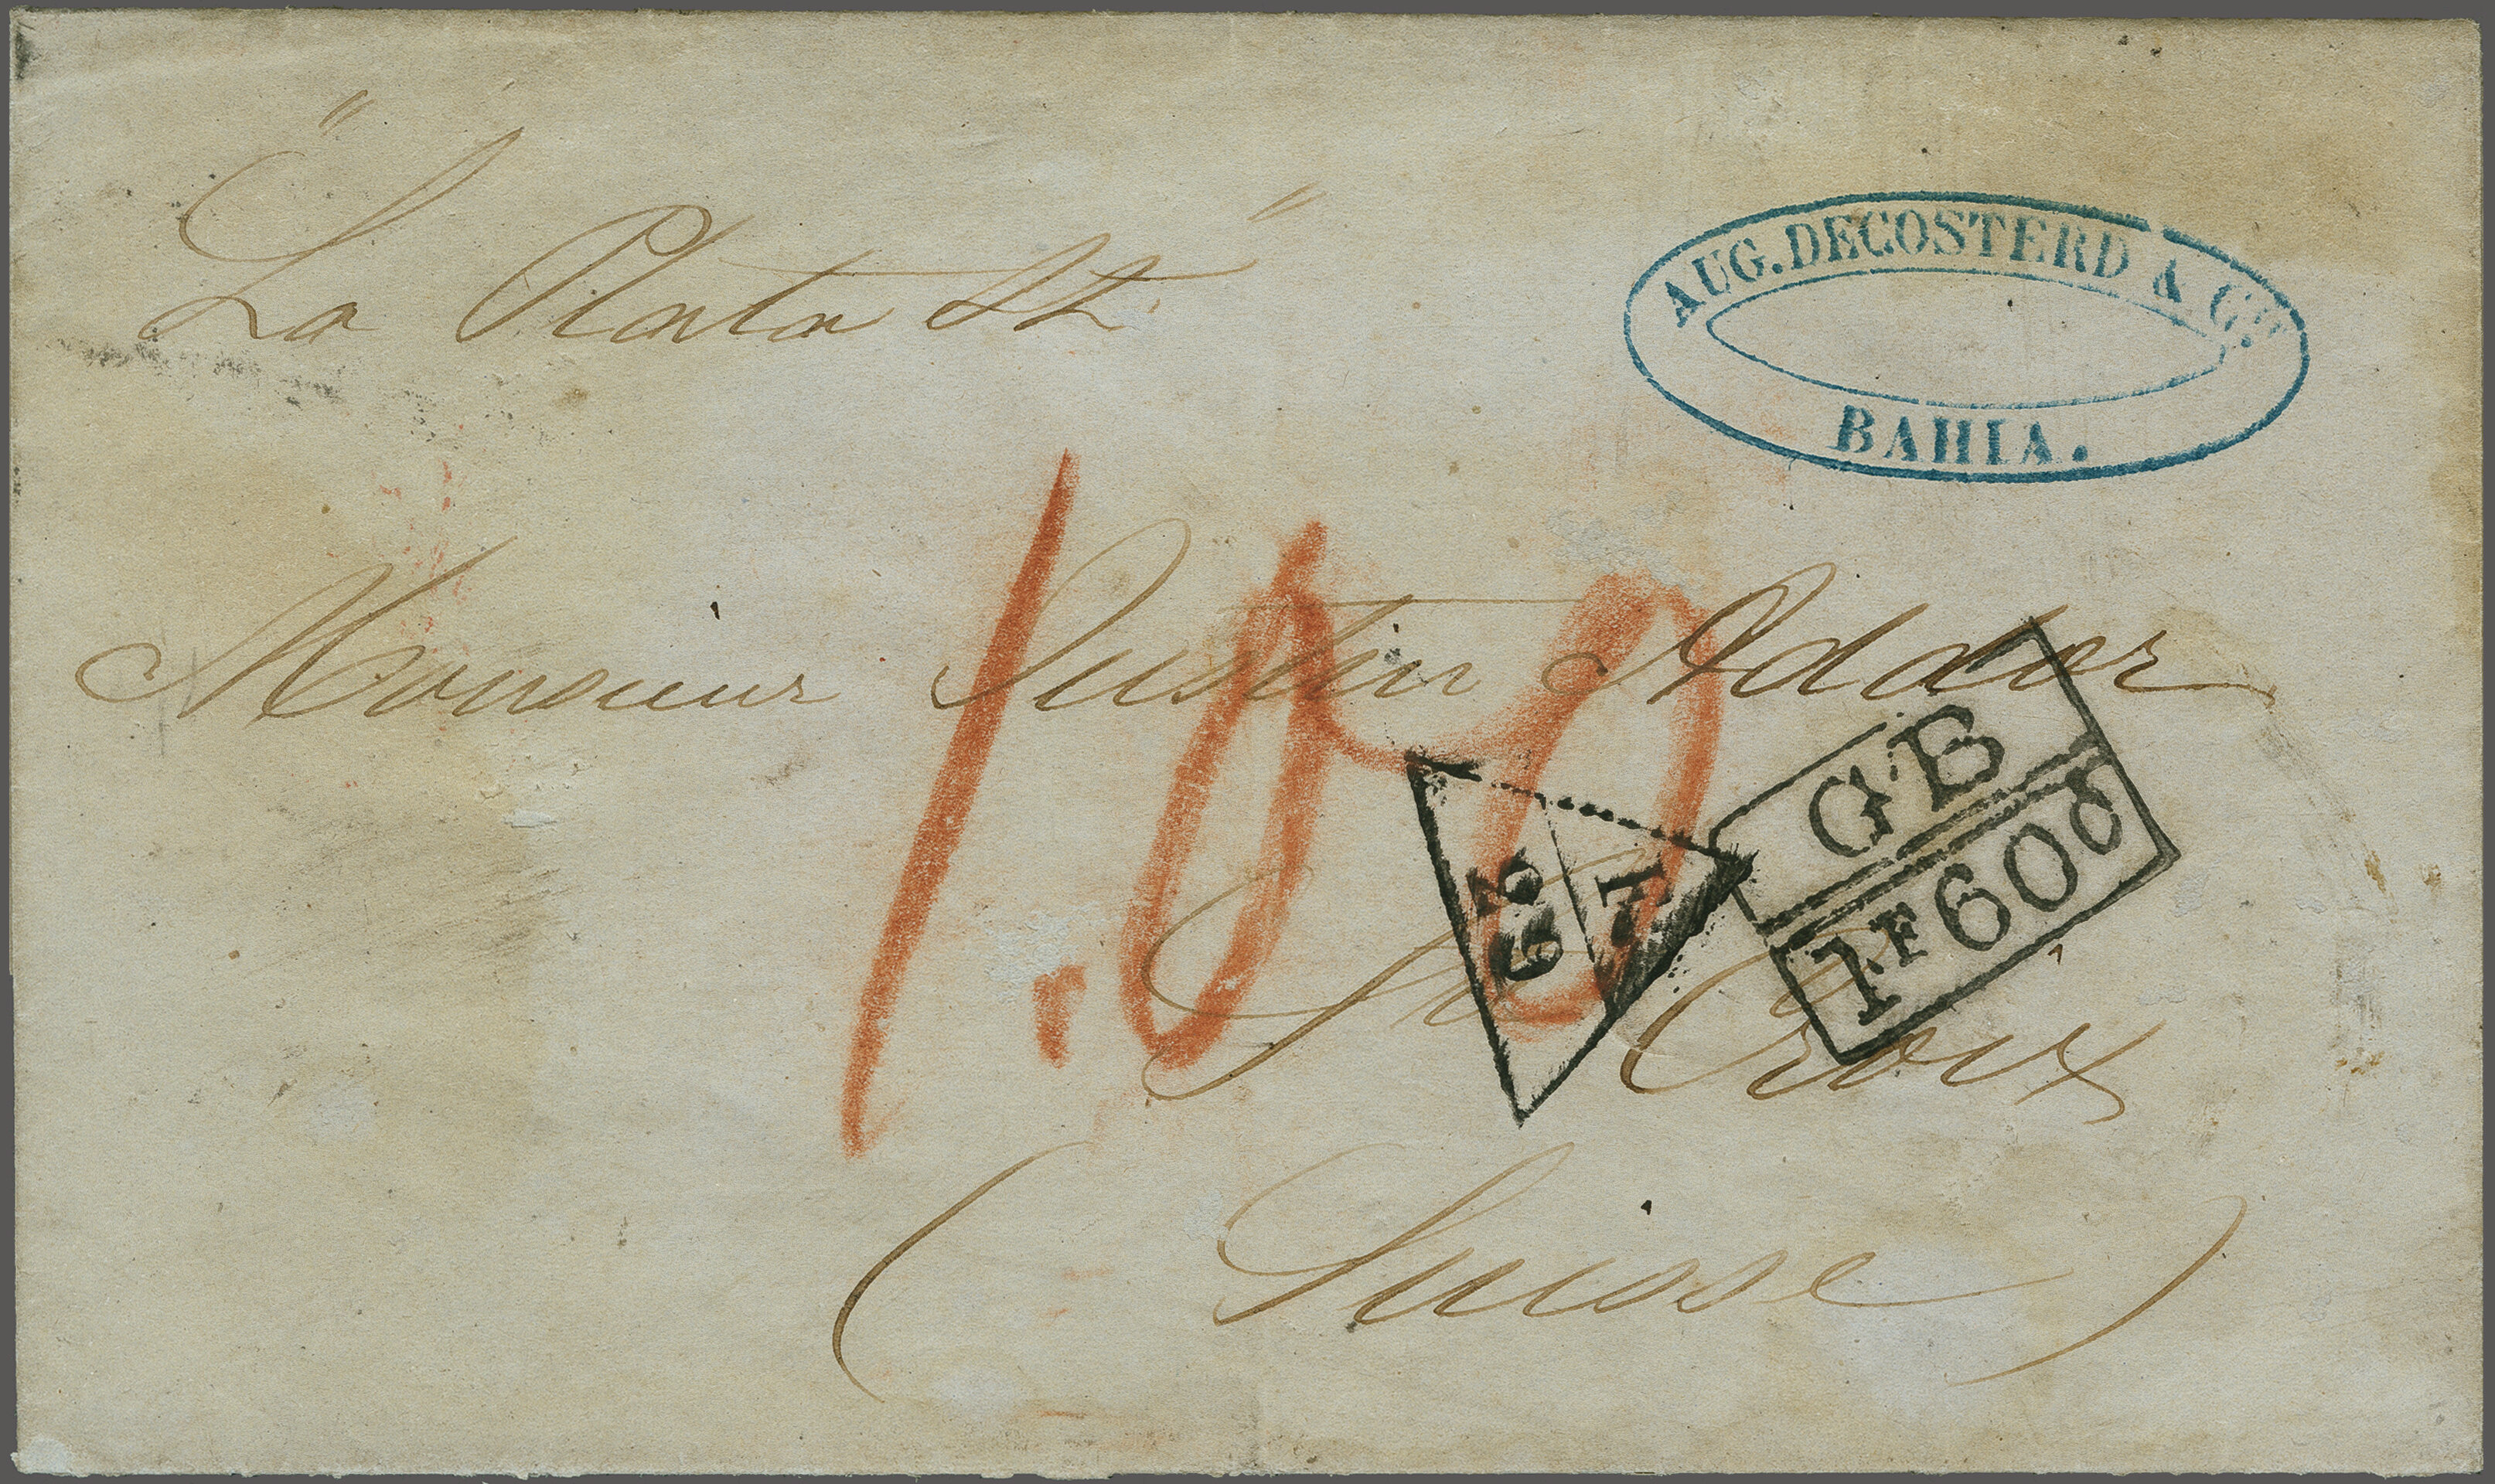 "La Plata St."
AUG. DECOSTERD & Cie.
BAHIA.
Monsieur Justin Addor
1.00
GB
1F60c
Ste Croix
(Suisse)